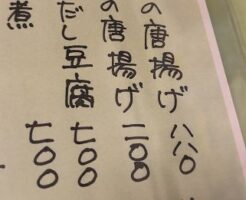 の唐揚げ 八八〇
の唐揚げ 一二〇〇
だし豆腐 七〇〇
煮 七〇〇